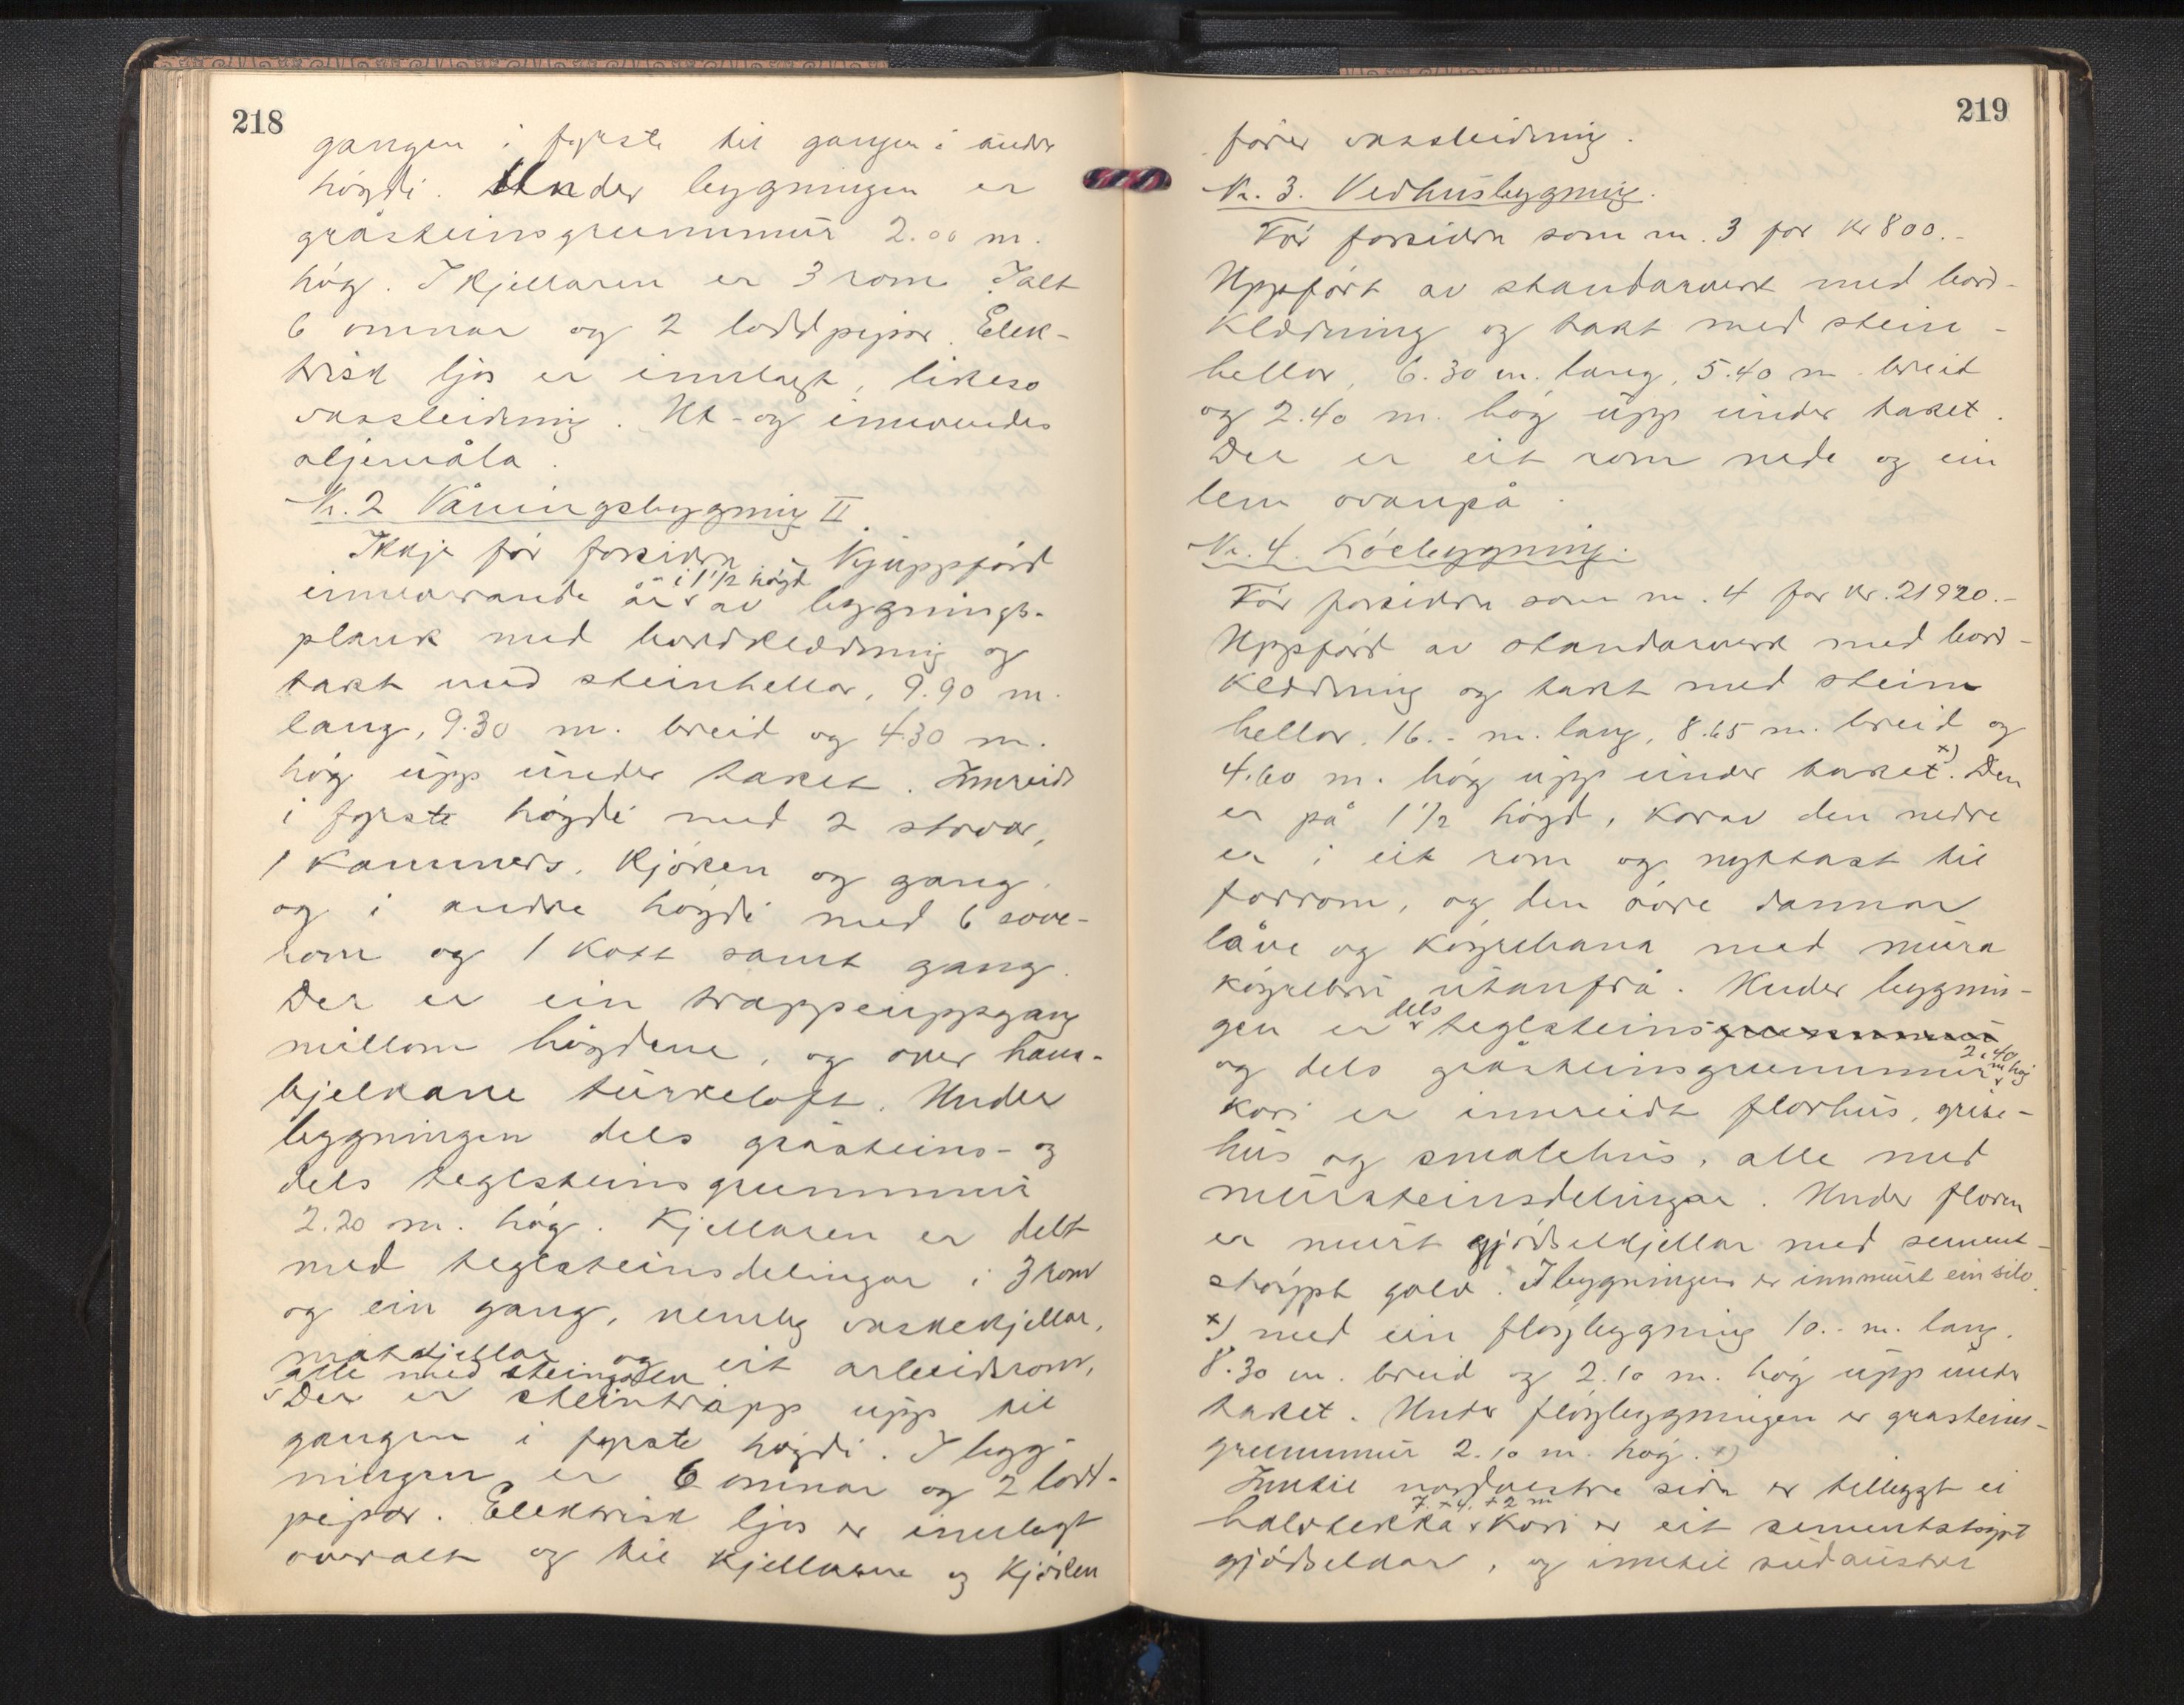 218
gangen i fyrste til gangen i andre
högdi. Under bygningen er
gråsteinsgrunnmur 2.00 m.
hög. I kjellaren er 3 rom. Ialt
6 omnar og 2 loddpipor. Elek-
trisk ljos er innlagt, likeso
vassleidning. Ut- og innvendes
oljemåla.
Nr. 2 Våningsbygning II.
Ikkje för forsikra. Nyuppförd
innverande år i 1 1/2 högd av bygnings-
plank med bordklædning og
takt med steinhellor, 9.90 m.
lang, 9.30 m. breid og 4.30 m.
hög upp under taket. Innreidt
i fyrste högdi med 2 stovor,
1 kammers, kjöken og gang,
og i andre högdi med 6 sove-
rom og 1 kott samt gang.
Der er ein trappeuppgang
millom högdene, og over hane-
bjelkane turkeloft. Under
bygningen dels gråsteins- og
dels teglsteinsgrunnmur
2.20 m. hög. Kjellaren er delt
med teglsteinsdelingar i 3 rom
og ein gang, nemleg vaskekjellar,
matkjellar og eit arbeidsrom,
alle med steingolv
Der er steintrapp upp til
gangen i fyrste högdi. I byg-
ningen er 6 omnar og 2 lodd-
pipor. Elektrisk ljos er innlagt
overalt og til kjellarane og kjöken
219
förer vassleidning.
Nr. 3. Vedhusbygning.
För forsikra som nr. 3 for kr 800.-
Uppfört av standarverk med bord-
klædning og takt med stein-
hellor, 6.30 m. lang, 5.40 m. breid
og 2.40 m. hög upp under taket.
Der er eit rom nede og ein
lem ovanpå.
Nr. 4. Löebygning.
För forsikra som nr. 4 for kr. 21920.-
Uppförd av standarverk med bord-
klædning og takt med stein
hellor, 16.- m. lang, 8.65 m. breid og
4.60 m. hög upp under taket x). Den
er på 1 1/2 högd, korav den nedre
er i eit rom og nyttast til
forrom, og den övre dannar
låve og köyrebana med mura
köyrebru utanfrå. Under bygnin-
gen er dels teglsteinsgrunnmur
og dels gråsteinsgrunnmur 2.40 m hög
kori er innreidt florhus, grise-
hus og smalehus, alle med
mursteinsdelingar. Under floren
er murt gjödselkjellar med sement-
stöypt golv. I bygningen er innmurt ein silo.
x) med ein flöybygning 10.- m. lang.
8.30 m. breid og 2.10 m. hög upp under
taket. Under flöybygningen er gråsteins-
grunnmur 2.10 m. hög. x)
Inntil nordvestre sida er tilbygt ei
halvtekka 7. x 4. x 2 m kori er eit sementstöypt
gjödselkar, og inntil sudaustre